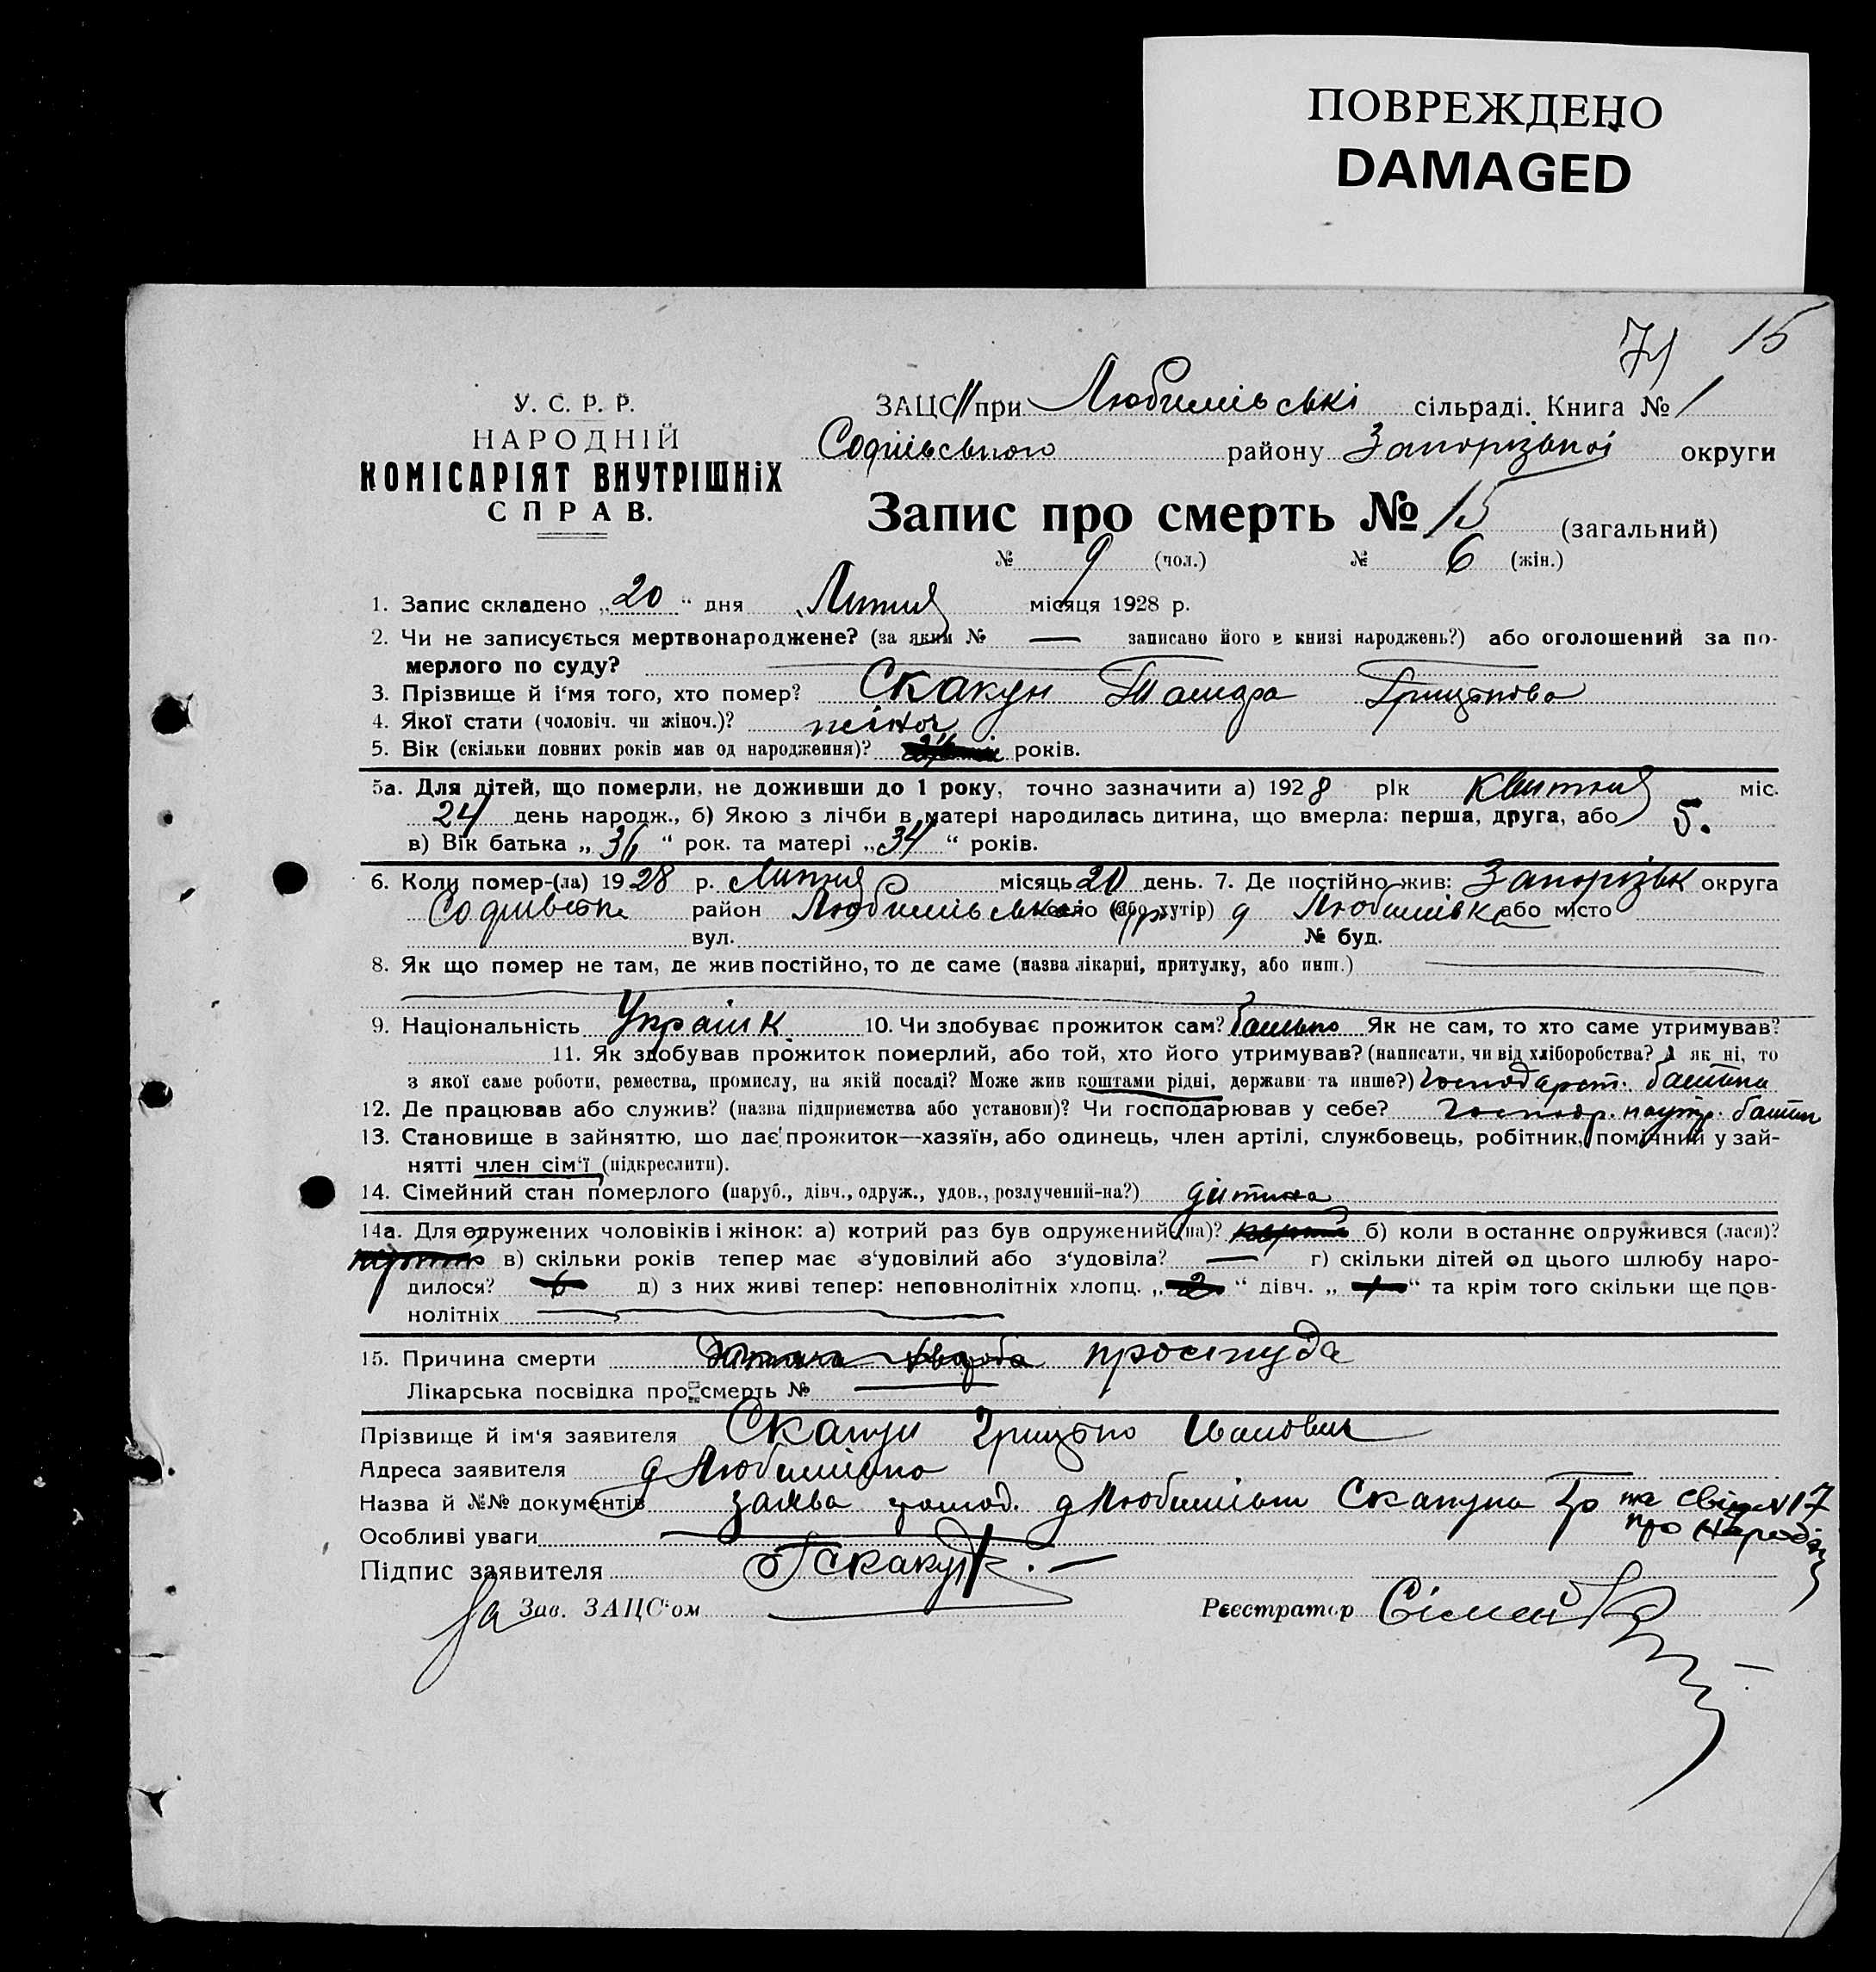 ПОВРЕЖДЕНО
DAMAGED
71 15
У. С. Р. Р.
НАРОДНІЙ
КОМІСАРІЯТ ВНУТРІШНІХ
СПРАВ.
ЗАЦС при Любимівські сільраді. Книга № 1
Софіївського району Запорізької округи
Запис про смерть № 15 (загальний)
№ 9 (чол.) № 6 (жін.)
1. Запис складено „20“ дня Липня місяця 1928 р.
2. Чи не записується мертвонароджене? (за яким № — записано його в книзі народжень?) або оголошений за по-
мерлого по суду?
3. Прізвище й і'мя того, хто помер? Скакун Грицькова
4. Якої стати (чоловіч. чи жіноч.)? жіноч
5. Вік (скільки повних років мав од народження)? років.
5а. Для дітей, що померли, не доживши до 1 року, точно зазначити а) 1928 рік Квітня міс.
24 день народж., б) Якою з лічби в матері народилась дитина, що вмерла: перша, друга, або 5.
в) Вік батька „36“ рок. та матері „34“ років.
6. Коли помер-(ла) 1928 р. Липня місяць 20 день. 7. Де постійно жив: Запорізьк округа
район Любимівська село (або хутір) д Любимівка або місто
вул. № буд.
8. Як що помер не там, де жив постійно, то де саме (назва лікарні, притулку, або инш.)
9. Національність Україн к 10. Чи здобуває прожиток сам? батько Як не сам, то хто саме утримував?
11. Як здобував прожиток померлий, або той, хто його утримував? (написати, чи від хліборобства? А як ні, то
з якої саме роботи, ремества, промислу, на якій посаді? Може жив коштами рідні, держави та инше?) господарст. батька
12. Де працював або служив? (назва підприємства або установи)? Чи господарював у себе?
13. Становище в зайняттю, що дає прожиток—хазяїн, або одинець, член артілі, службовець, робітник, помічний у зай-
нятті член сім'ї (підкреслити).
14. Сімейний стан померлого (паруб., дівч., одруж., удов., розлучений-на?) дитина
14а. Для одружених чоловіків і жінок: а) котрий раз був одружений (на)? б) коли в останнє одружився (лася)?
в) скільки років тепер має з'удовілий або з'удовіла? — г) скільки дітей од цього шлюбу наро-
дилося? 6 д) з них живі тепер: неповнолітніх хлопц. „2“ дівч. „1“ та крім того скільки ще пов-
нолітніх
15. Причина смерти простуда
Лікарська посвідка про смерть №
Прізвище й ім'я заявителя Скакун Грицько Іванович
Адреса заявителя д Любимівка
Назва й №№ документів заява д Любимівки Скакуна Гр та свід №17
про народж
Особливі уваги
Підпис заявителя Г Скакун
За Зав. ЗАЦС'ом Реєстратор